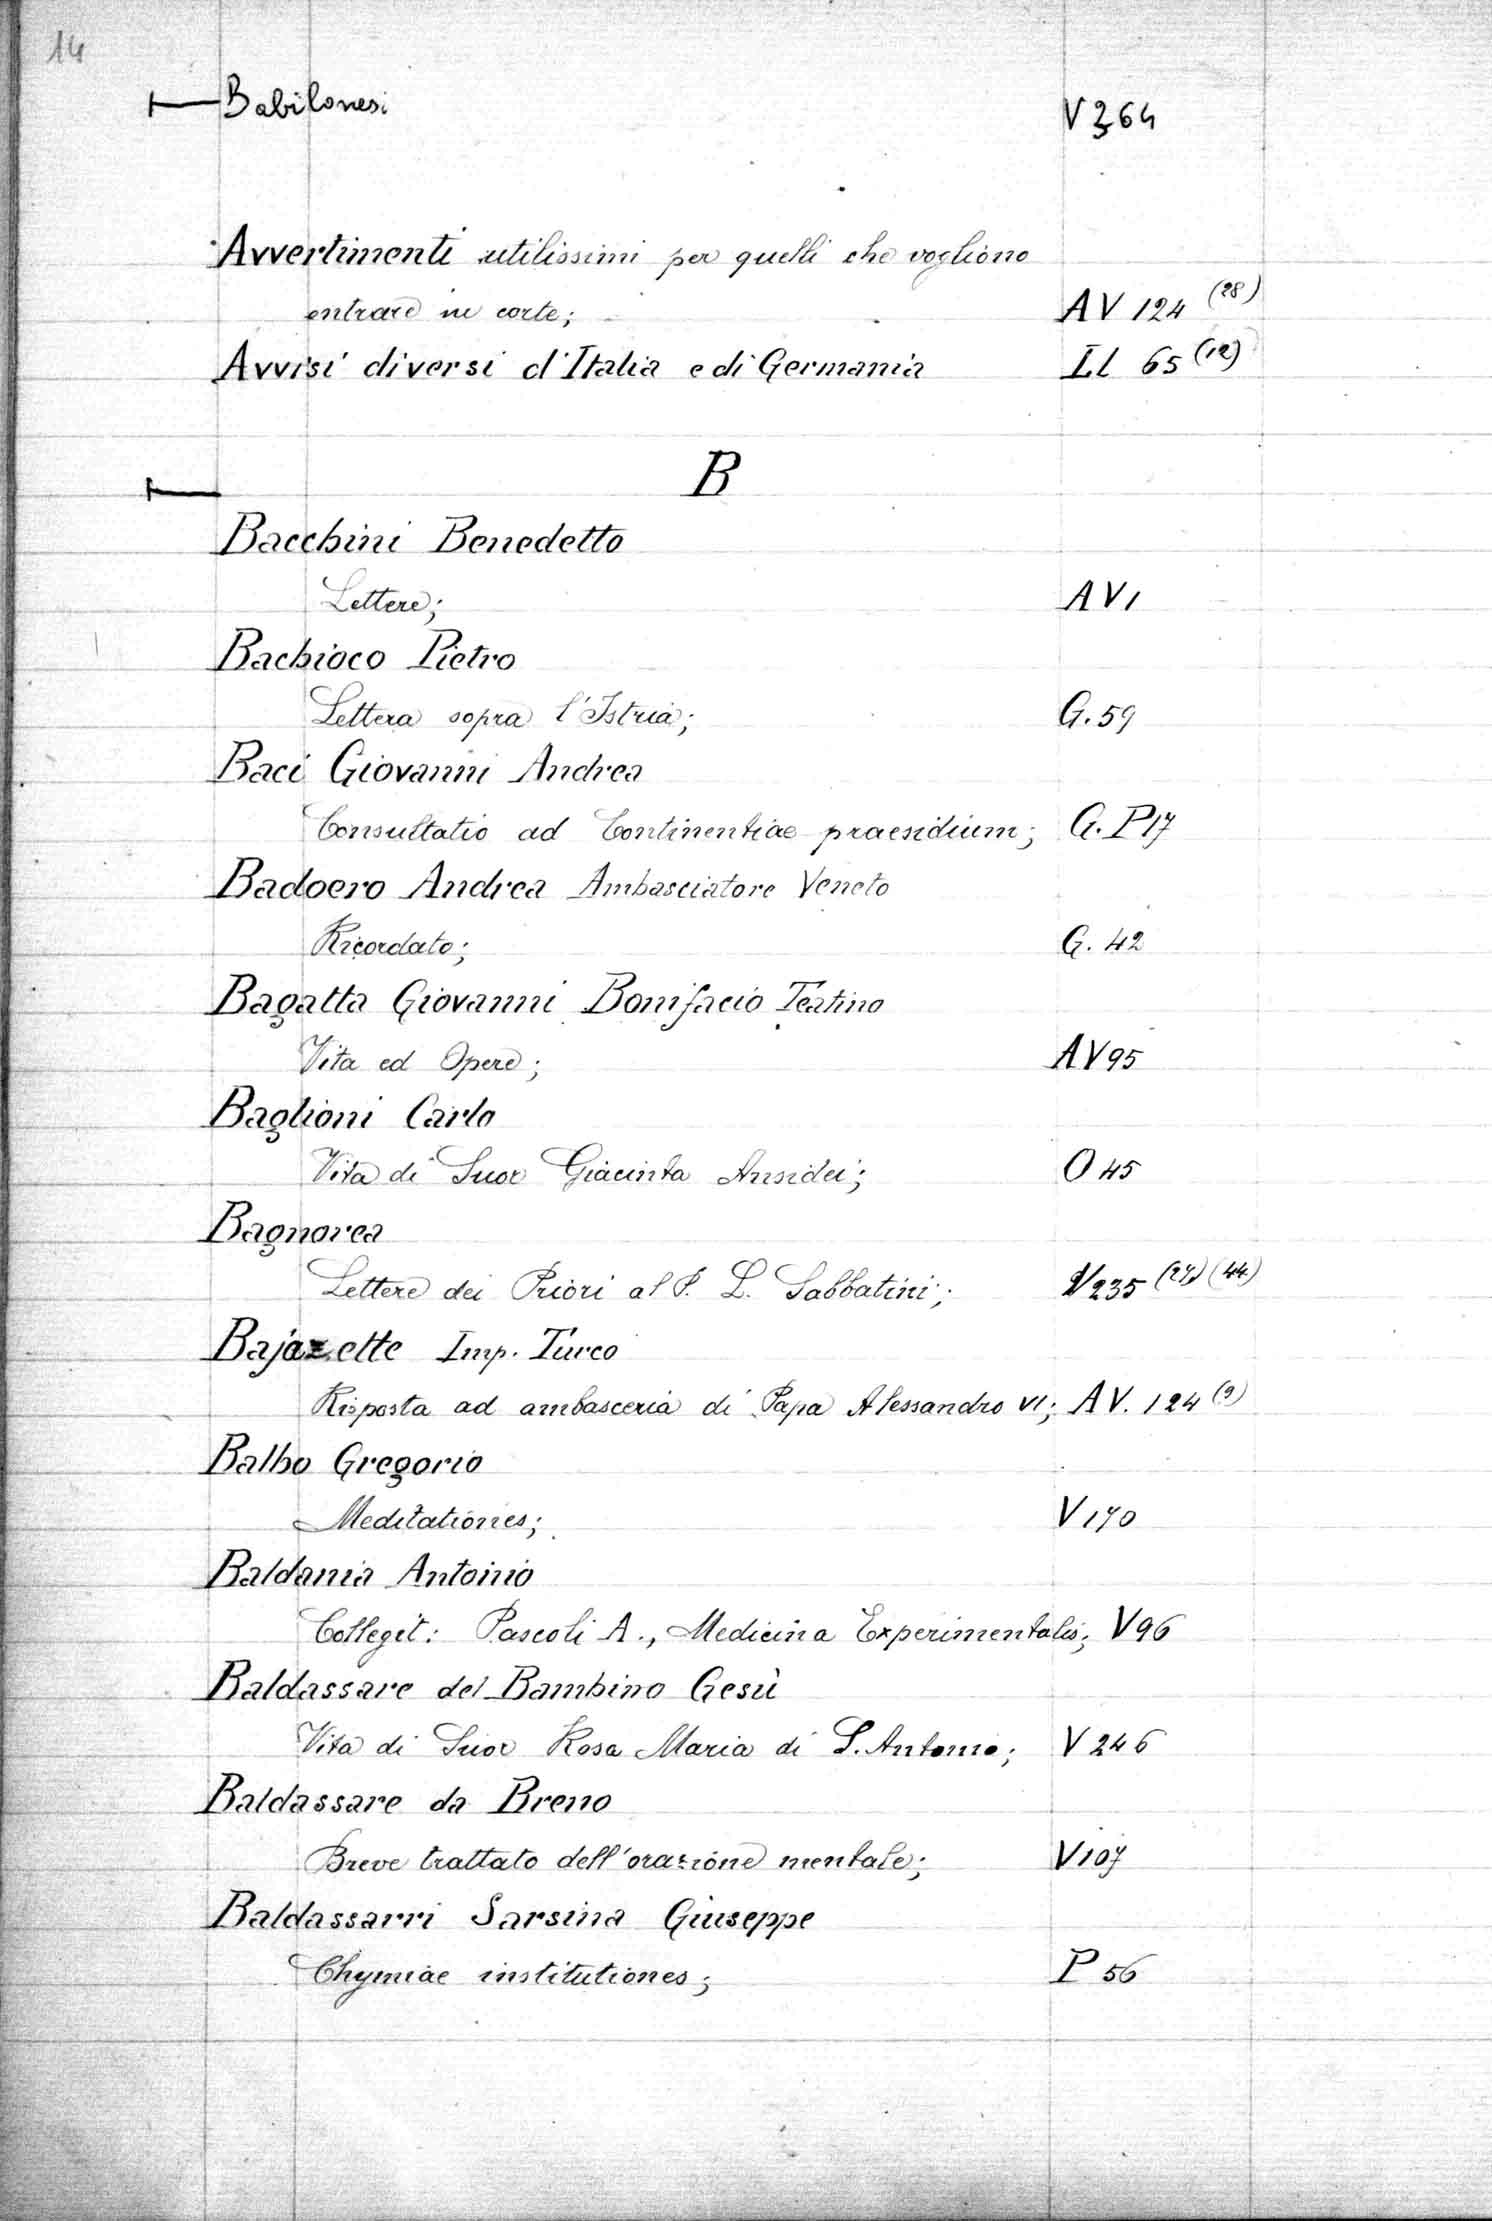 14
Babilonesi V 264
Avvertimenti utilissimi per quelli che vogliono
entrare in corte; AV 124 (28)
Avvisi diversi d'Italia e di Germania Ll 65 (12)
B
Bacchini Benedetto
Lettere; AV1
Bachioco Pietro
Lettera sopra l'Istria; G. 59
Baci Giovanni Andrea
Consultatio ad Continentiae praesidium; G. P17
Badoero Andrea Ambasciatore Veneto
Ricordato; G. 42
Bagatta Giovanni Bonifacio Teatino
Vita ed Opere; AV95
Baglioni Carlo
Vita di Suor Giacinta Ansidei; O 45
Bagnorea
Lettere dei Priori al P. L. Sabbatini; V235 (27) (44)
Bajazette Imp. Turco
Risposta ad ambasceria di Papa Alessandro VI; AV. 124 (9)
Balbo Gregorio
Meditationes; V 170
Baldania Antoinio
Collegit: Pascoli A., Medicina Experimentalis; V96
Baldassare del Bambino Gesù
Vita di Suor Rosa Maria di S. Antonio; V 246
Baldassare da Breno
Breve trattato dell'orazione mentale; V107
Baldassarri Sarsina Giuseppe
Chymiae institutiones; P 56